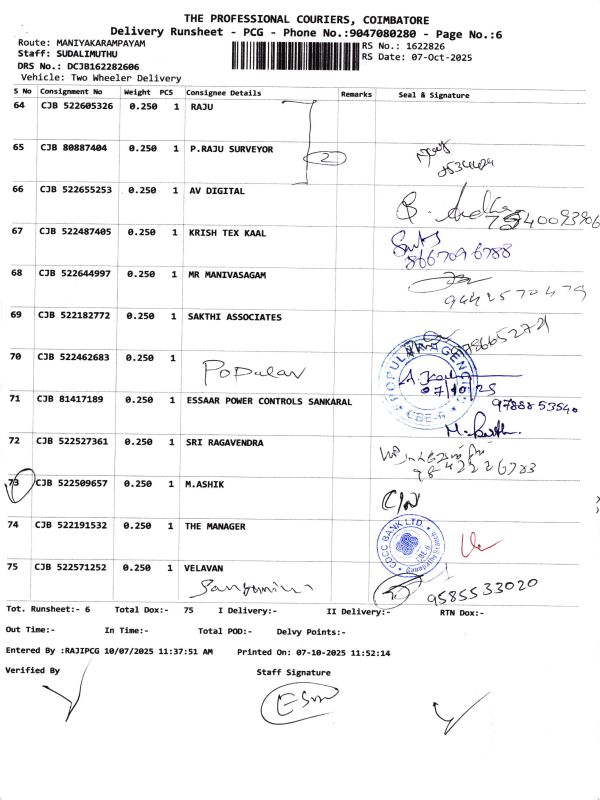 THE PROFESSIONAL COURIERS, COIMBATORE
Delivery Runsheet - PCG - Phone No.:9047080280 - Page No.:6
Route: MANIYAKARAMPAYAM
RS No.: 1622826
Staff: SUDALIMUTHU
RS Date: 07-Oct-2025
DRS No.: DCJB162282606
Vehicle: Two Wheeler Delivery
S No Consignment No Weight PCS Consignee Details Remarks Seal & Signature
64 CJB 522605326 0.250 1 RAJU
65 CJB 80887404 0.250 1 P.RAJU SURVEYOR 2
66 CJB 522655253 0.250 1 AV DIGITAL
67 CJB 522487405 0.250 1 KRISH TEX KAAL
8667096788
68 CJB 522644997 0.250 1 MR MANIVASAGAM
9442570479
69 CJB 522182772 0.250 1 SAKTHI ASSOCIATES
70 CJB 522462683 0.250 1
Popular
POPULAR AGENCIES
CBE-6
07/10/25
71 CJB 81417189 0.250 1 ESSAAR POWER CONTROLS SANKARAL
9788853540
72 CJB 522527361 0.250 1 SRI RAGAVENDRA
9842226783
73 CJB 522509657 0.250 1 M.ASHIK
C/N
74 CJB 522191532 0.250 1 THE MANAGER
CDCC BANK LTD.
CBE-6
Ganapathy Branch
75 CJB 522571252 0.250 1 VELAVAN
9585533020
Tot. Runsheet:- 6 Total Dox:- 75 I Delivery:- II Delivery:- RTN Dox:-
Out Time:- In Time:- Total POD:- Delvy Points:-
Entered By :RAJIPCG 10/07/2025 11:37:51 AM Printed On: 07-10-2025 11:52:14
Verified By Staff Signature